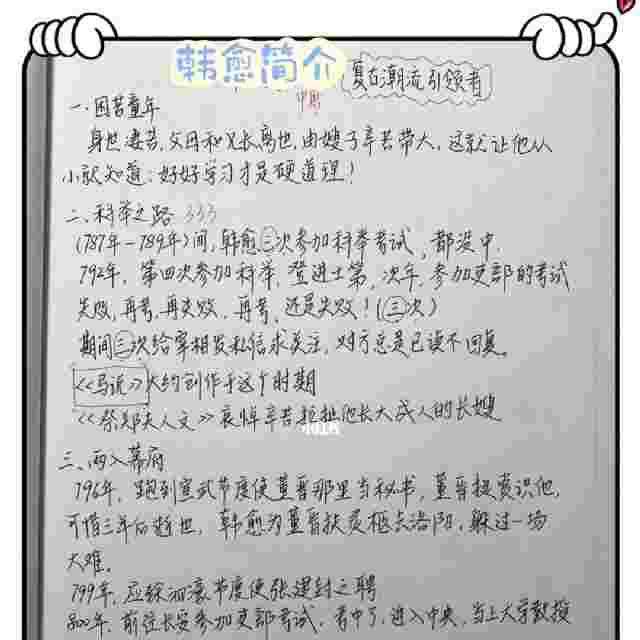 韩愈简介
复古潮流引领者
中唐
一.困苦童年
身世凄苦,父母和兄长离世,由嫂子辛苦带大,这就让他从
小就知道:好好学习才是硬道理!
二、科举之路 333
(787年-789年)间,韩愈三次参加科举考试,都没中.
792年,第四次参加科举,登进士第,次年,参加吏部的考试
失败,再考,再失败,再考,还是失败!(三次)
期间三次给宰相发私信求关注,对方总是已读不回复。
《马说》大约创作于这个时期
《祭郑夫人文》哀悼辛苦拉扯他长大成人的长嫂
小红书
三、两入幕府
796年,跑到宣武节度使董晋那里当秘书,董晋很赏识他,
可惜三年后逝世,韩愈为董晋扶灵柩去洛阳,躲过一场
大难。
799年,应徐泗濠节度使张建封之聘
800年,前往长安参加吏部考试,考中了,进入中央,当上大学教授